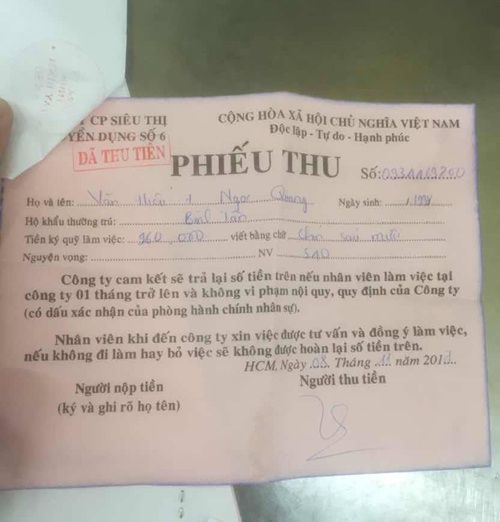 CP SIÊU THỊ
YỂN DỤNG SỐ 6
ĐÃ THU TIỀN
CỘNG HÒA XÃ HỘI CHỦ NGHĨA VIỆT NAM
Độc lập - Tự do - Hạnh phúc
PHIẾU THU
Số:
Họ và tên: Văn Hiếu + Ngọc Quang Ngày sinh:
Hộ khẩu thường trú: Bình Tân
Tiền ký quỹ làm việc: 260,000 viết bằng chữ
Nguyện vọng: NV
Công ty cam kết sẽ trả lại số tiền trên nếu nhân viên làm việc tại
công ty 01 tháng trở lên và không vi phạm nội quy, quy định của Công ty
(có dấu xác nhận của phòng hành chính nhân sự).
Nhân viên khi đến công ty xin việc được tư vấn và đồng ý làm việc,
nếu không đi làm hay bỏ việc sẽ không được hoàn lại số tiền trên.
HCM, Ngày 08 Tháng 11 năm 2017
Người nộp tiền
(ký và ghi rõ họ tên)
Người thu tiền